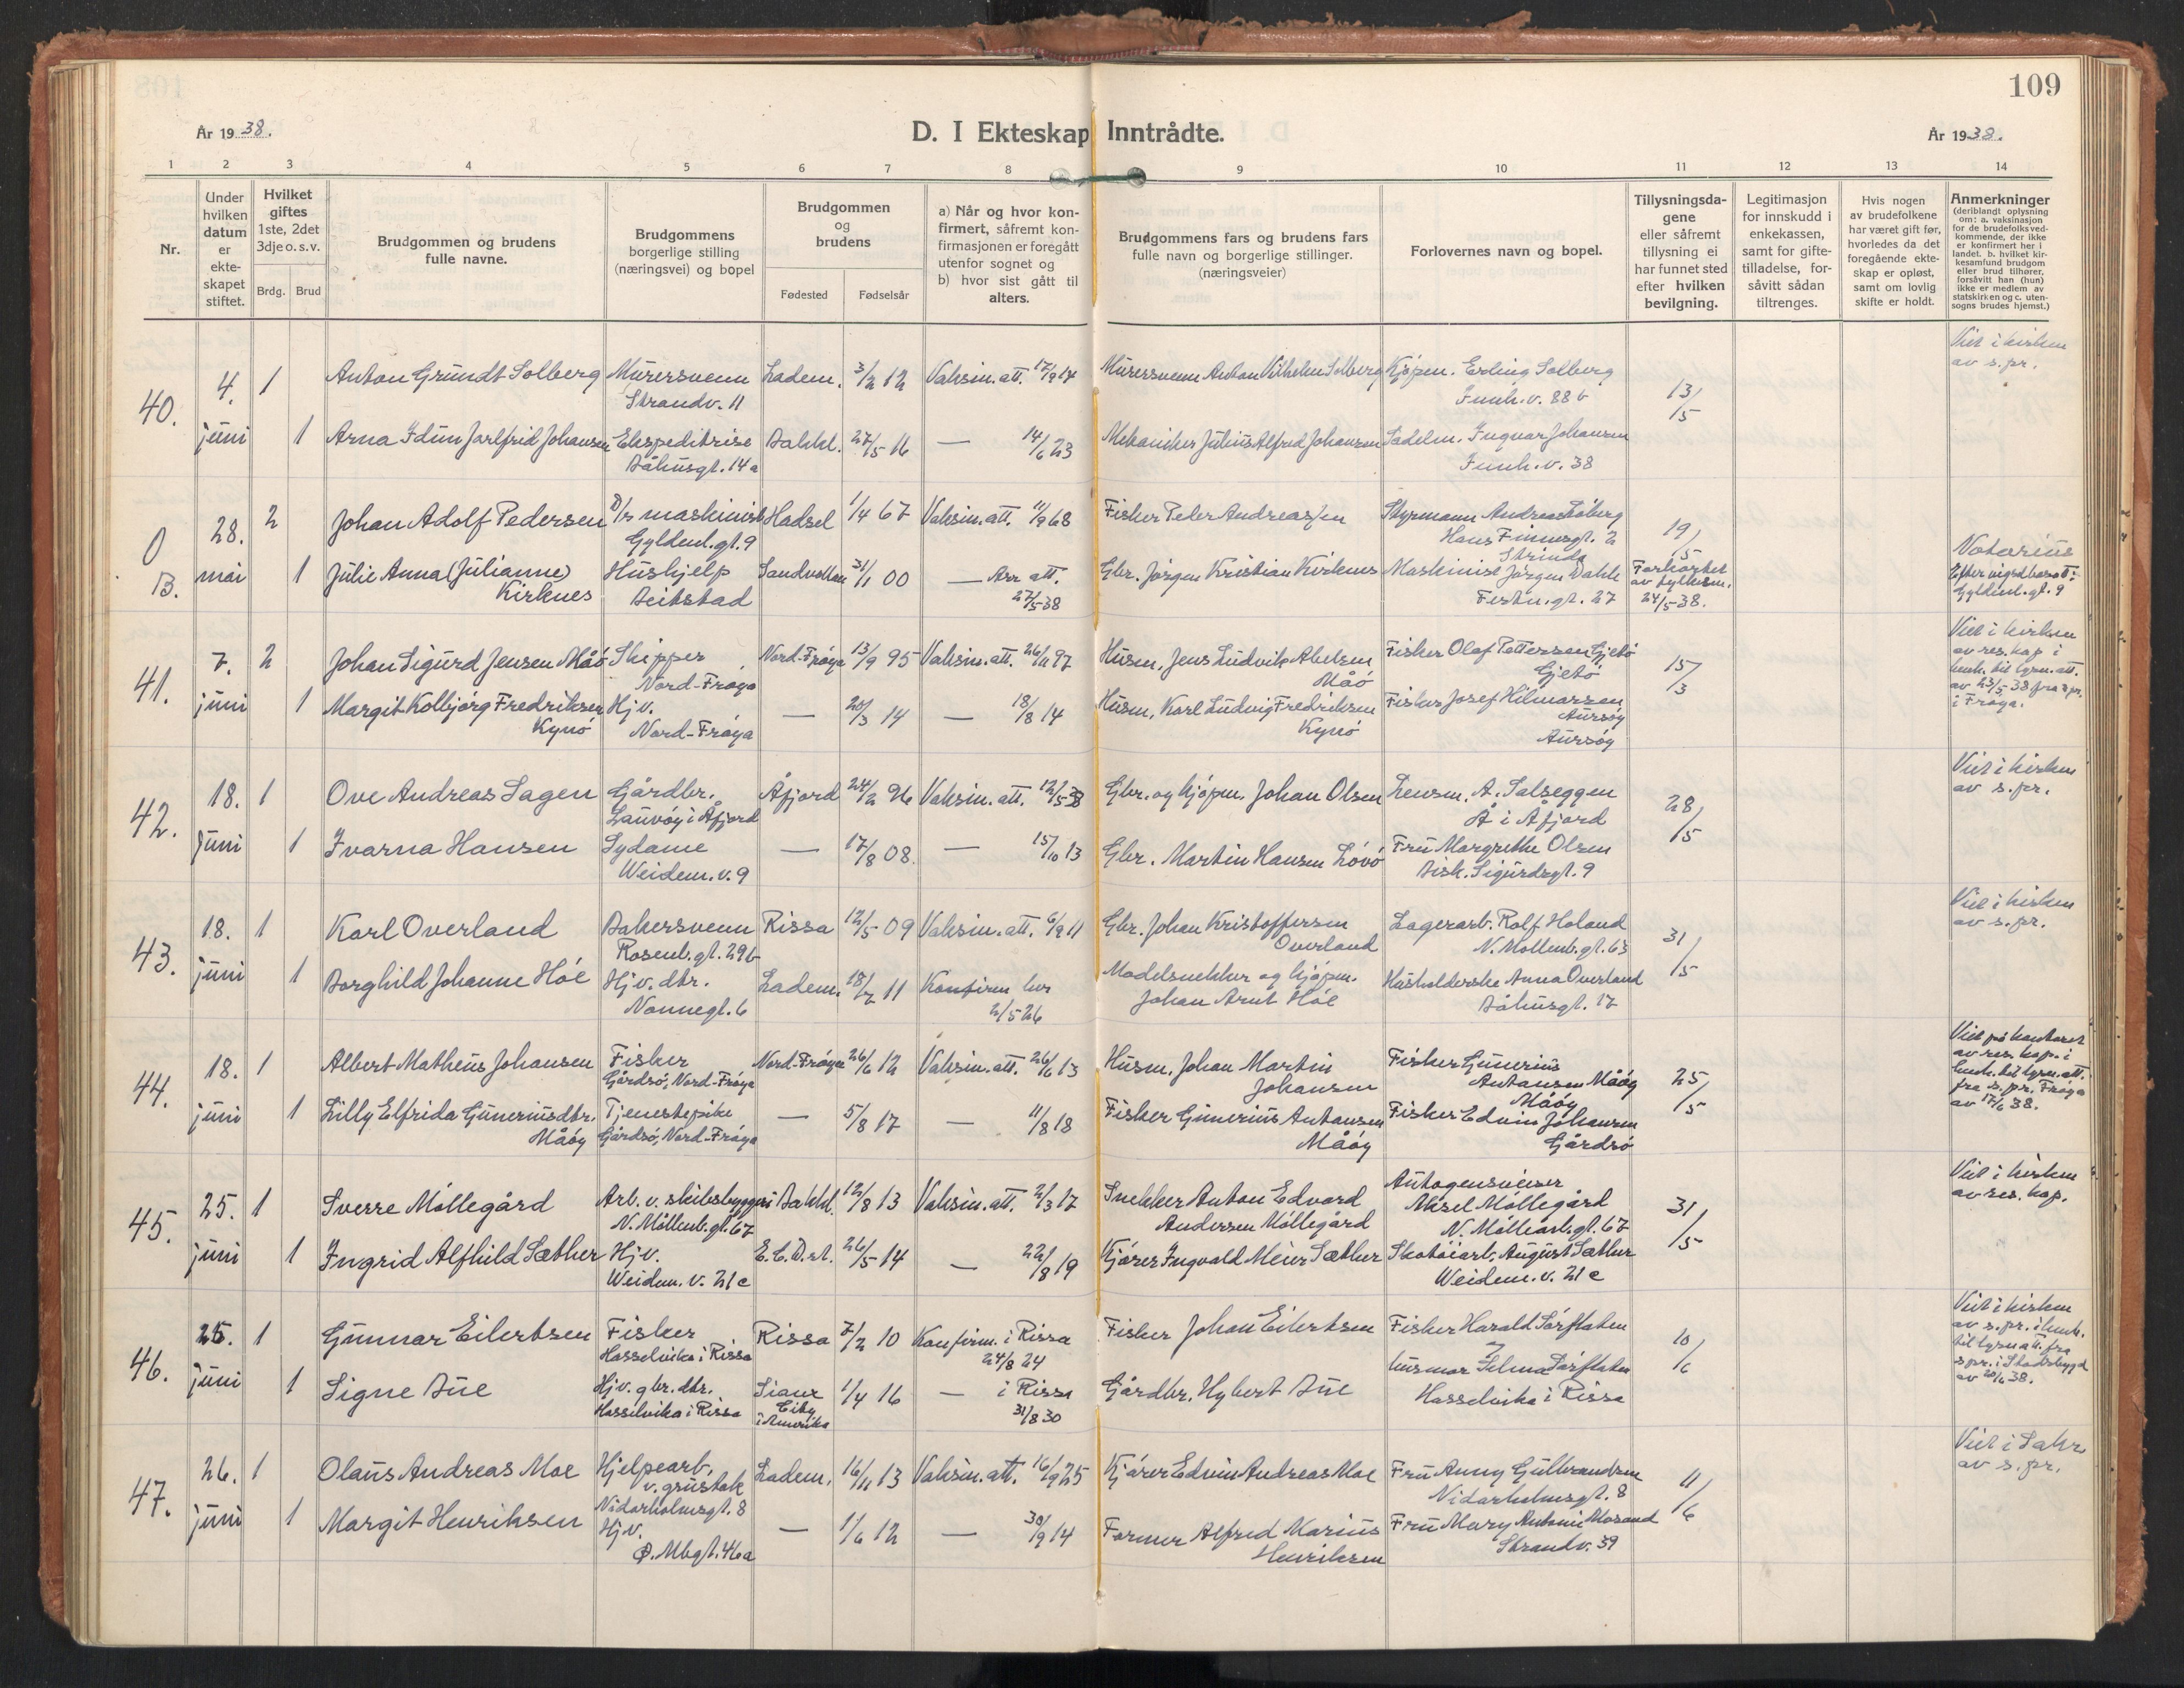 109
År 1938.
D. I Ekteskap Inntrådte.
År 1938.
1 2 3 4 5 6 7 8 9 10 11 12 13 14
Nr.
Under hvilken datum er ekte-skapet stiftet.
Hvilket giftes 1ste, 2det 3dje o. s. v.
Brdg. Brud
Brudgommen og brudens fulle navne.
Brudgommens borgerlige stilling (næringsvei) og bopel
Brudgommen og brudens
Fødested Fødselsår
a) Når og hvor kon-firmert, såfremt kon-firmasjonen er foregått utenfor sognet og b) hvor sist gått til alters.
Brudgommens fars og brudens fars fulle navn og borgerlige stillinger. (næringsveier)
Forlovernes navn og bopel.
Tillysningsda-gene eller såfremt tillysning ei har funnet sted efter hvilken bevilgning.
Legitimasjon for innskudd i enkekassen, samt for gifte-tilladelse, for-såvitt sådan tiltrenges.
Hvis nogen av brudefolkene har været gift før, hvorledes da det foregående ekte-skap er opløst, samt om lovlig skifte er holdt.
Anmerkninger (deriblandt oplysning om: a. vaksinasjon for de brudefolks ved-kommende, der ikke er konfirmert her i landet. b. hvilket kir-kesamfund brudgom eller brud tilhører, forsåvitt han (hun) ikke er medlem av statskirken og c. uten-sogns brudes hjemst.)
40. 4. juni
1 Anton Grundt Solberg Murersvenn Strandv. 11 Ladem. 3/2 12 Vaksin. att. 17/9 14 Murersvenn Anton Vilhelm Solberg Kjøpm. Erling Solberg Innh. v. 88 b 13/5 Viet i kirken av s. pr.
1 Arna Idun Jarlfrid Johansen Ekspeditrise Båhusgt. 14 a Bakkl. 27/5 16 — 14/6 23 Mekaniker Julius Alfred Johansen Sadelm. Ingvar Johansen Innh. v. 38
0 B. 28. mai
2 Johan Adolf Pedersen D/s maskinist Gyldenl. gt. 9 Hadsel 1/4 67 Vaksin. att. 11/9 68 Fisker Peter Andreassen Styrmann Andreas Soberg Hans Finnesgt. 2 Strinda 19/5
1 Julie Anna (Julianne) Kirknes Hushjelp Beitstad Sandvollan 31/1 00 — Arr att. 27/5 38 Gbr. Jørgen Kristian Kirknes Maskinist Jørgen Dahle Festn. gt. 27 Forkortet av fylkesm. 24/5 38. Notarius Efter vigsel bosatt: Gyldenl. gt. 9
41. 7. juni
2 Johan Sigurd Jensen Måø Skipper Nord-Frøya Nord-Frøya 13/9 95 Vaksin. att. 26/11 97 Husm. Jens Ludvik Abelsen Måø Fisker Olaf Pettersen Gjetø Gjetø 15/3 Viet i kirken av res. kap i henh. til lysn. att. av 23/5 38 fra s. pr. i Frøya.
1 Margit Kolbjørg Fredriksen Kynø Hj. v. Nord-Frøya — 20/3 14 — 18/8 14 Husm. Karl Ludvig Fredriksen Kynø Fisker Josef Hilmarsen Aursøy Aursøy
42. 18. juni
1 Ove Andreas Sagen Gårdbr. Lauvøy i Åfjord Åfjord 24/2 96 Vaksin. att. 12/5 38 Gbr. og kjøpm. Johan Olsen Lensm. A. Salseggen Å i Åfjord 28/5 Viet i kirken av s. pr.
1 Ivarna Hansen Sydame Weidem. v. 9 — 17/8 08. — 15/10 13 Gbr. Martin Hansen Løvø Fru Margrethe Olsen Bisk. Sigurdsgt. 9
43. 18. juni
1 Karl Overland Bakersvenn Rosenb. gt. 29 b Rissa 12/5 09 Vaksin. att. 6/9 11 Gbr. Johan Kristoffersen Overland Lagerarb. Rolf Holand N. Møllenb. gt. 63 31/5 Viet i kirken av s. pr.
1 Borghild Johanne Høe Hj. v. dtr. Nonnegt. 6 Ladem. 18/7 11 Konfirm her 2/5 26 Modelsnekker og kjøpm. Johan Arnt Høe Husholderske Anna Overland Båhusgt. 17
44. 18. juni
1 Albert Matheus Johansen Fisker Gårdsø, Nord-Frøya Nord-Frøya 26/6 12 Vaksin. att. 26/6 13 Husm. Johan Martin Johansen Fisker Gunerius Antonsen Måøy Måøy 25/5 Viet på kontoret av res. kap. i henh. til lysn. att. fra s. pr. Frøya av 17/6 38.
1 Lilly Elfrida Guneriusdtr. Måøy Tjenestepike Gårdsø, Nord-Frøya — 5/8 17 — 11/8 18 Fisker Gunerius Antonsen Måøy Fisker Edvin Johansen Gårdsø
45. 25. juni
1 Sverre Møllegård Arb. v. skibsbyggeri N. Møllenb. gt. 67 Bakkl. 12/8 13 Vaksin. att. 2/3 17 Snekker Anton Edvard Andersen Møllegård Autogensveiser Aksel Møllegård N. Møllenb. gt. 67 31/5 Viet i kirken av res. kap.
1 Ingrid Alfhild Sæther Hj. v. Weidem. v. 21 c E. C. D. st. 26/5 14 — 22/8 19 Kjører Ingvald Meier Sæther Skotøiarb. August Sæther Weidem. v. 21 c
46. 25. juni
1 Gunnar Eilertsen Fisker Hasselvika i Rissa Rissa 7/2 10 Konfirm. i Rissa 24/8 24 Fisker Johan Eilertsen Fisker Harald Sørflaten 10/6 Viet i kirken av s. pr. i henh. til lysn. att. fra s. pr. i Stadsbygd av 20/6 38.
1 Signe Bue Hj. v. gbr. dtr. Hasselvika i Rissa Sioux City i Amerika 1/4 16 — i Rissa 31/8 30 Gårdbr. Hybert Bue husmor Selma Sørflaten Hasselvika i Rissa
47. 26. juni
1 Olaus Andreas Moe Hjelpearb. v. grustak Nidarholmsgt. 8 Ladem. 16/11 13 Vaksin. att. 16/9 25 Kjører Edvin Andreas Moe Fru Anny Gulbrandsen Nidarholmsgt. 8 11/6 Viet i Sakr. av s. pr.
1 Margit Henriksen Hj. v. Ø. Mbgt. 46 a — 1/6 12 — 30/9 14 Former Alfred Marius Henriksen Fru Mary Antonie Mosand Strandv. 39